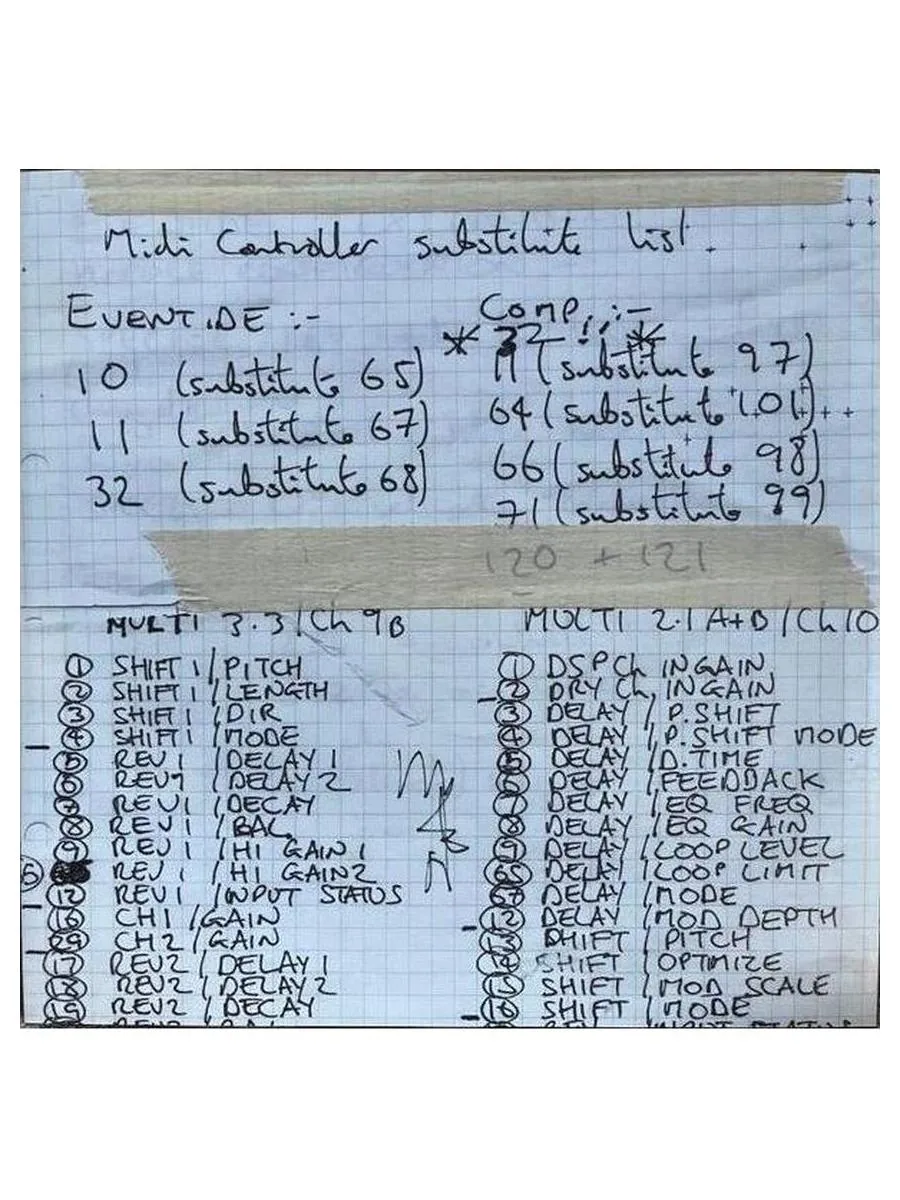 Midi Controller substitute list.
EVENTIDE :-
10 (substitute 65)
11 (substitute 67)
32 (substitute 68)
Comp. :-
* 32 !! *
11 (substitute 97)
64 (substitute 101)
66 (substitute 98)
71 (substitute 99)
120 + 121
MULTI 3.3 / Ch 9B
1 SHIFT 1 / PITCH
2 SHIFT 1 / LENGTH
3 SHIFT 1 / DIR
4 SHIFT 1 / MODE
5 REV 1 / DELAY 1
6 REV 1 / DELAY 2
7 REV 1 / DECAY
8 REV 1 / BAL
9 REV 1 / HI GAIN 1
REV 1 / HI GAIN 2
12 REV 1 / INPUT STATUS
16 CH1 / GAIN
29 CH2 / GAIN
REV2 / DELAY 1
18 REV2 / DELAY 2
19 REV2 / DECAY
MULTI 2.1 A+B / Ch 10
1 DSP Ch IN GAIN
2 DRY Ch, IN GAIN
3 DELAY / P.SHIFT
4 DELAY / P.SHIFT MODE
5 DELAY / D.TIME
6 DELAY / FEEDDACK
7 DELAY / EQ FREQ
8 DELAY / EQ GAIN
9 DELAY / LOOP LEVEL
65 DELAY / LOOP LIMIT
67 DELAY / MODE
12 DELAY / MOD DEPTH
13 SHIFT / PITCH
14 SHIFT / OPTMIZE
15 SHIFT / MOD SCALE
16 SHIFT / MODE